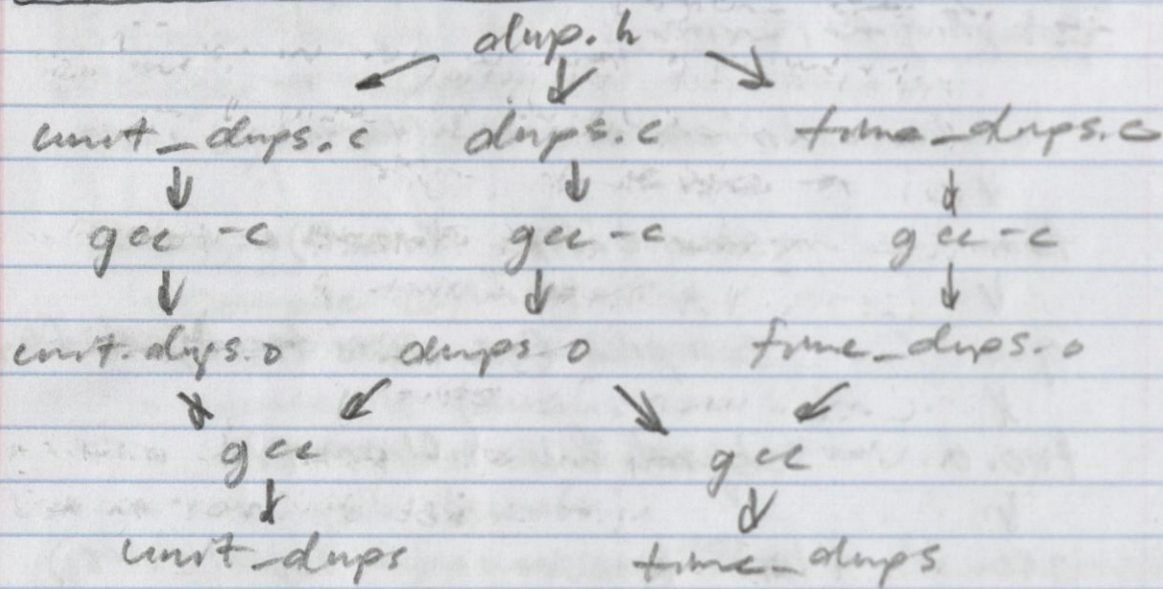 dup.h
unit_dups.c dups.c time_dups.c
gcc -c gcc -c gcc -c
unit.dups.o dups.o time_dups.o
gcc gcc
unit_dups time_dups